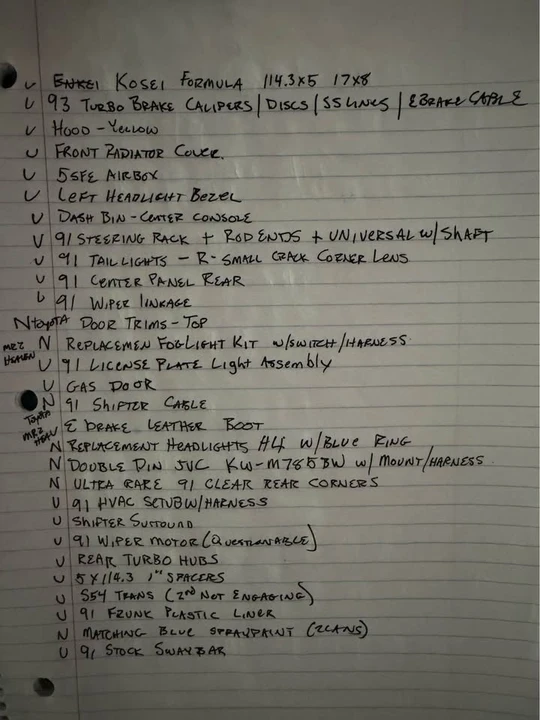 U ENKEI KOSEI FORMULA 114.3X5 17X8
U 93 TURBO BRAKE CALIPERS | DISCS | SS LINES | EBRAKE CABLE
U HOOD - YELLOW
U FRONT RADIATOR COVER.
U 5SFE AIRBOX
U LEFT HEADLIGHT BEZEL
U DASH BIN - CENTER CONSOLE
U 91 STEERING RACK + ROD ENDS + UNIVERSAL W/ SHAFT
U 91 TAILLIGHTS - R - SMALL CRACK CORNER LENS
U 91 CENTER PANEL REAR
U 91 WIPER LINKAGE
N TOYOTA DOOR TRIMS - TOP
MR2 HEAVEN N REPLACEMEN FOGLIGHT KIT W/SWITCH/HARNESS
U 91 LICENSE PLATE Light Assembly
U GAS DOOR
N 91 SHIFTER CABLE
TOYOTA MR2 HEAV U E BRAKE LEATHER BOOT
N REPLACEMENT HEADLIGHTS H4 W/BLUE RING
N DOUBLE DIN JVC KW-M785BW W/ MOUNT/HARNESS
N ULTRA RARE 91 CLEAR REAR CORNERS
U 91 HVAC SETUP W/HARNESS
U SHIFTER SURROUND
U 91 WIPER MOTOR (QUESTIONABLE)
U REAR TURBO HUBS
U 5X114.3 1" SPACERS
U S54 TRANS (2nd NOT ENGAGING)
U 91 FRUNK PLASTIC LINER
N MATCHING BLUE SPRAYPAINT (2CANS)
U 91 STOCK SWAYBAR